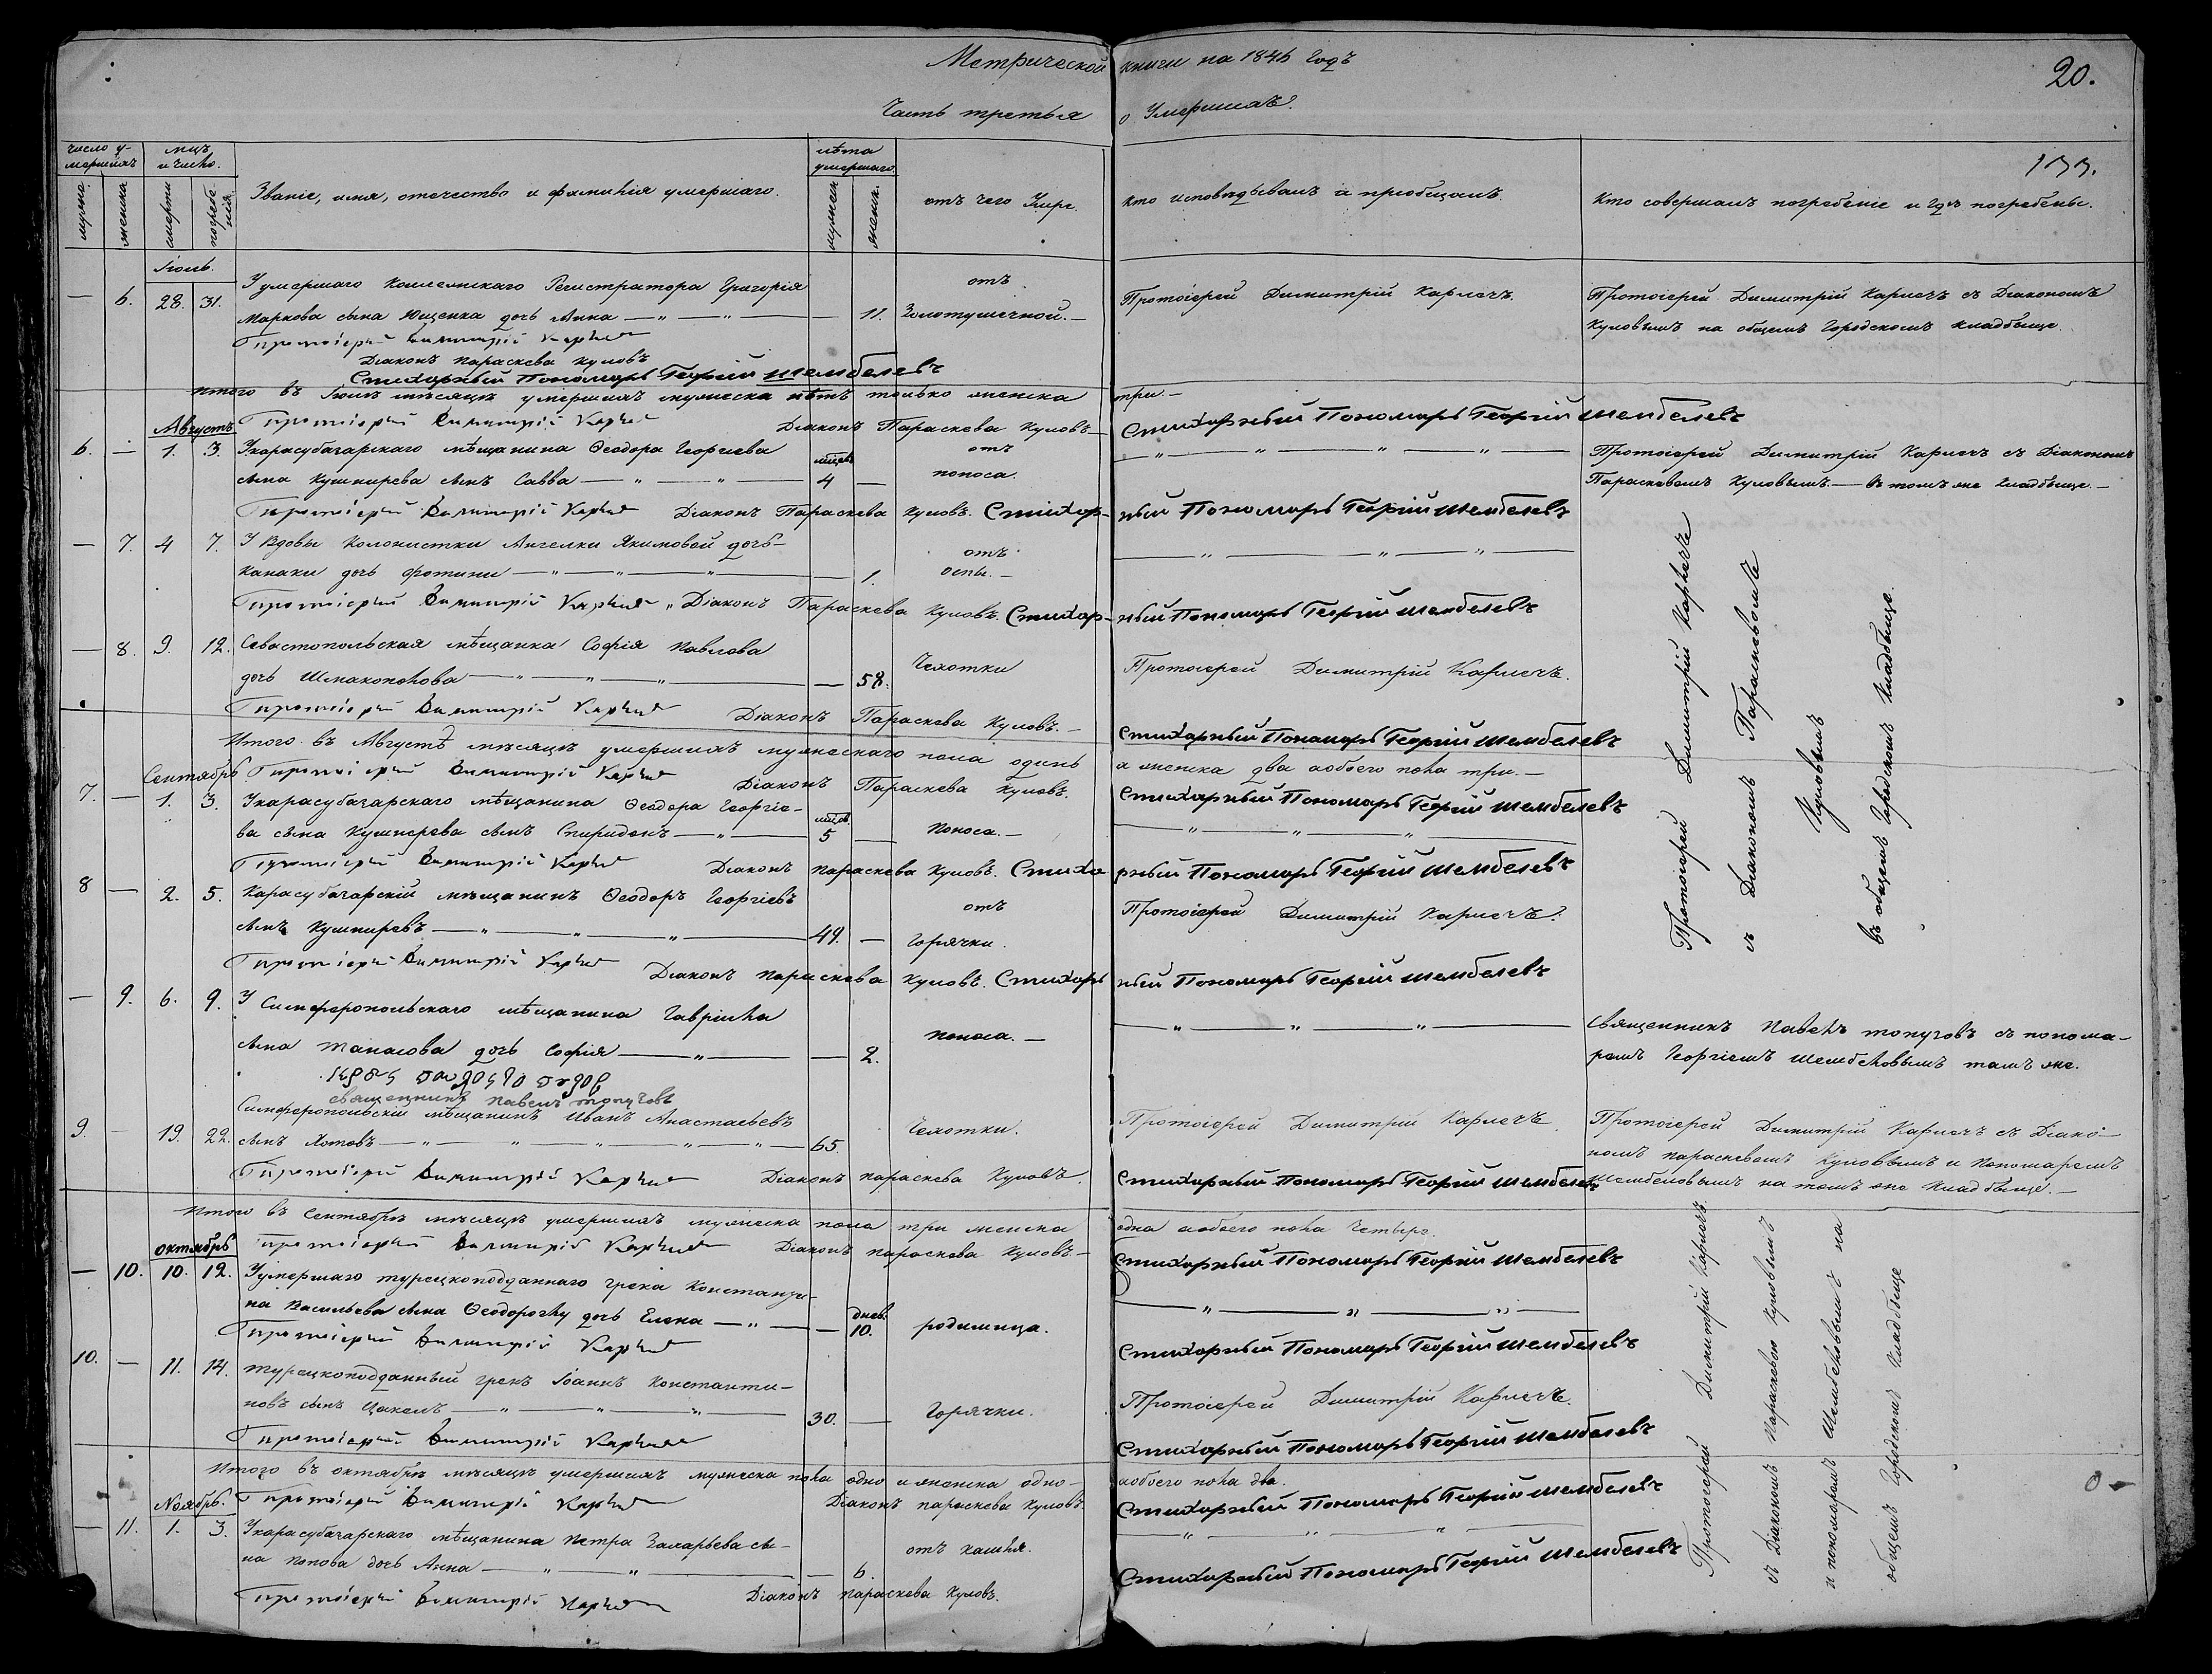 Метрической книги на 1846 годъ
20.
Часть третья о Умершихъ.
133.
число у-мершихъ
мцъ и число.
лѣта умершаго
мужеска.
женска
смерти
погребе-нія.
Званіе, имя, отечество и фамилія умершаго.
мужеска
женск.
отъ чего Умре.
кто исповѣдывалъ и пріобщалъ.
Кто совершалъ погребеніе и гдѣ погребены.
Іюль.
— 6. 28. 31. Уумершаго Коллежскаго Регистратора Григорія отъ Протоіерей Димитрій Карпечъ. Протоіерей Димитрій Карпечъ съ Діакономъ
Маркова сына Ющенка дочь Анна — „ — „ — — 11. Золотушечной. — Куловымъ на общемъ Городскомъ кладбище.
Протоіерей Димитрій
Діаконъ Параскева Куловъ
Стихарный Пономарь Георгій Шембелевъ
Итого въ Іюлѣ мѣсяцѣ умершихъ мужеска нѣтъ только женска три. —
Августъ
Протоіерей Димитрій Діаконъ Параскева Куловъ — Стихарный Пономарь Георгій Шембелевъ
6. — 1. 3. Укарасубазарскаго мѣщанина Ѳеодора Георгіева отъ — „ — „ — „ — „ — Протоіерей Димитрій Карпечъ съ Діакономъ
сына Кушнирева сынъ Савва — „ — „ — мцов. 4 — поноса. Параскевамъ Куловымъ. — въ томъ же кладбище. —
Протоіерей Димитрій Діаконъ Параскева Куловъ. Стихар-ный Пономарь Георгій Шембелевъ
— 7. 4 7. У Вдовы Колонистки Ангелки Якимовой дочь- отъ — „ — „ — „ —
Канаки дочь Фотини — „ — „ — „ — — 1. оспы. —
Протоіерей Димитрій Діаконъ Параскева Куловъ. Стихар-ный Пономарь Георгій Шембелевъ
— 8. 9. 12. Севастопольская мѣщанка Софія Павлова Чехотки Протоіерей Димитрій Карпечъ.
дочь Шмаконохова — „ — „ — „ — — 58.
Протоіерей Димитрій Діаконъ Параскева Куловъ. — Стихарный Пономарь Георгій Шембелевъ
Протоіерей Димитрій Карпечъ
съ Діакономъ Параскевомъ
Куловымъ
въ общемъ Городскомъ Кладбище.
Итого въ Августѣ мѣсяцѣ умершихъ мужескаго пола одинъ а женска два аобоего пола три. —
Сентябрь
Протоіерей Димитрій Діаконъ Параскева Куловъ. Стихарный Пономарь Георгій Шембелевъ
7. — 1. 3. Укарасубазарскаго мѣщанина Ѳеодора Георгіе-
ва сына Кушнерева сынъ Спиридонъ — „ — мцов. 5 — Поноса. — — „ — „ — „ —
Протоіерей Димитрій Діаконъ Параскева Куловъ. Стиха рный Пономарь Георгій Шембелевъ
8 — 2. 5. Карасубазарскій мѣщанинъ Ѳеодоръ Георгіевъ отъ Протоіерей Димитрій Карпечъ.
сынъ Кушниревъ — „ — „ — „ — 49. — Горячки.
Протоіерей Димитрій Діаконъ Параскева Куловъ. Стихарь ный Пономарь Георгій Шембелевъ
— 9. 6. 9. У Симферопольскаго мѣщанина Гавріила Поноса. — — „ — „ — „ — Священникъ Павелъ Топузовъ съ понома-
сына Танасова дочь Софія — „ — — 2. ремъ Георгіемъ Шембеловымъ тамъ же.
Священникъ Павелъ Топузовъ
9. — 19. 22. Симферопольскій мѣщанинъ Иванъ Анастасьевъ Чехотки. Протоіерей Димитрій Карпечъ. Протоіерей Димитрій Карпечъ съ Діако-
сынъ Хотовъ — „ — „ — „ — „ — „ — 65. номъ Параскевамъ Куловымъ и Пономаремъ
Протоіерей Димитрій Діаконъ Параскева Куловъ. Стихарный Пономарь Георгій Шембелевъ Шембеловымъ на томъ же Кладбище. —
Итого въ Сентябрѣ мѣсяцѣ умершихъ мужеска пола три женска одна аобоего пола четыре.
октябрь
Протоіерей Димитрій Діаконъ Параскева Куловъ — Стихарный Пономарь Георгій Шембелевъ
— 10. 10. 12. Уумершаго турецкоподданнаго грека Константи-
на Васильева сына Ѳеодороглу дочь Елена — „ — — днев. 10. родимица. — „ — „ — „ —
Протоіерей Димитрій Стихарный Пономарь Георгій Шембелевъ
10. — 11. 14. Турецкоподданный грекъ Іоаннъ Константи- Протоіерей Димитрій Карпечъ.
новъ сынъ Цакелъ — „ — „ — „ — 30. — Горячки.
Протоіерей Димитрій Стихарный Пономарь Георгій Шембелевъ
Итого въ октябрѣ мѣсяцѣ умершихъ мужеска пола одно и женска одно — аобоего пола два.
Ноябрь.
Протоіерей Димитрій Діаконъ Параскева Куловъ Стихарный Пономарь Георгій Шембелевъ
— 11. 1. 3. Укарасубазарскаго мѣщанина Петра Захарьева сы- отъ кашля. „ — „ — „ —
на Попова дочь Анна — „ — „ — — 6.
Протоіерей Димитрій Діаконъ Параскева Куловъ. Стихарный Пономарь Георгій Шембелевъ
Протоіерей Димитрій Карпечъ
съ Діакономъ Параскевою Куловымъ
и пономаремъ Шембеловымъ на
общемъ Городскомъ Кладбище